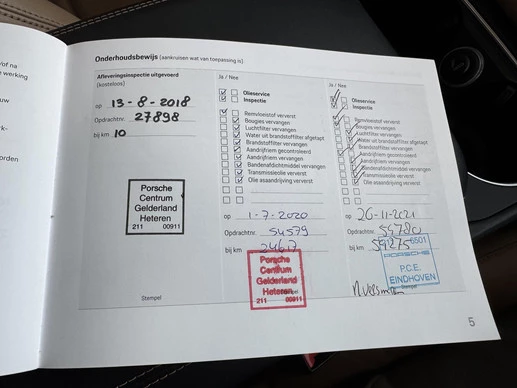 /of na
werking
uw
k-
orden
Onderhoudsbewijs (aankruisen wat van toepassing is)
Afleveringsinspectie uitgevoerd
(kosteloos)
op 13-8-2018
Opdrachtnr. 27898
bij km 10
Porsche
Centrum
Gelderland
Heteren
211 00911
Stempel
Ja / Nee
Olieservice
Inspectie
Remvloeistof ververst
Bougies vervangen
Luchtfilter vervangen
Water uit brandstoffilter afgetapt
Brandstoffilter vervangen
Aandrijfriem gecontroleerd
Aandrijfriem vervangen
Bandenafdichtmiddel vervangen
Transmissieolie ververst
Olie asaandrijving ververst
op 1-7-2020
Opdrachtnr. 54579
bij km 24617
Porsche
Centrum
Gelderland
Heteren
211 00911
Ja / Nee
Olieservice
Inspectie
Remvloeistof ververst
Bougies vervangen
Luchtfilter vervangen
Water uit brandstoffilter afgetapt
Brandstoffilter vervangen
Aandrijfriem gecontroleerd
Aandrijfriem vervangen
Bandenafdichtmiddel vervangen
Transmissieolie ververst
Olie asaandrijving ververst
op 26-11-2021
Opdrachtnr.
bij km
6501
PORSCHE
P.C.E.
EINDHOVEN
Stempel
5